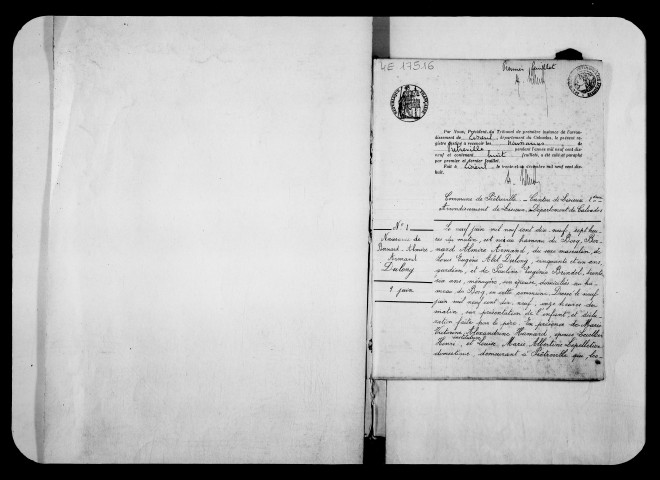 4E 17516
Premier feuillet
Par Nous, Président du Tribunal de première instance de l'arron-
dissement de Lisieux, département du Calvados, le présent re-
gistre destiné à recevoir les Naissances de
Prêtreville pendant l'année mil neuf cent dix-
neuf et contenant huit feuillets, a été coté et paraphé
par premier et dernier feuillet.
Fait à Lisieux, le trente et un décembre mil neuf cent dix-
huit.
Commune de Prêtreville. Canton de Lisieux 1ère
Arrondissement de Lisieux. Département du Calvados
N° 1
Naissance de
Bernard-Almire
Armand
Dulong
9 juin
Le neuf juin mil neuf cent dix-neuf, sept heu-
res du matin, est né au hameau de Bosq, Ber-
nard Almire Armand, du sexe masculin, de
Louis Eugène Abel Dulong, cinquante et un ans,
et de Pauline Eugénie Brindel, trente
six ans, ménagère, son épouse, domiciliés au ha-
meau de Bosq, en cette commune. Dressé le neuf
juin mil neuf cent dix-neuf, onze heures du
matin, sur présentation de l'enfant et décla-
ration faite par le père. En présence de Marie
Victorine Alexandrine Humard, épouse
Henri, institutrice et Louise Marie Albertine Lepelletier
domestique, demeurant à Prêtreville qui, lec-